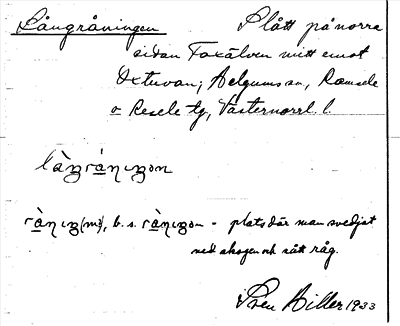 Långråningen Slått på norra
sidan Faxälven mitt emot
Oxtuvan; Helgums sn, Ramsele
o Resele tg, Västernorrl. l.
làŋråniŋən
ràniŋ (m), b. s. ràniŋən - plats där man svedjat
ned skogen och sått råg.
Sven Hiller 1933